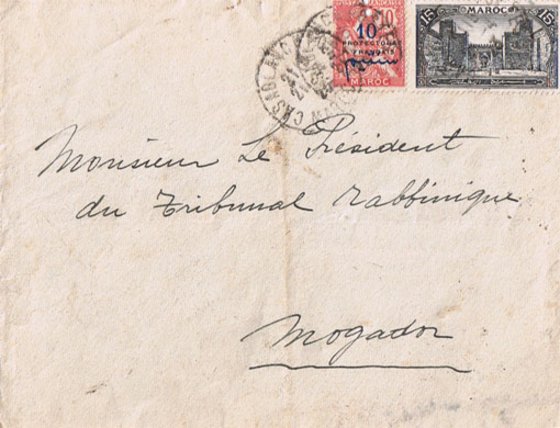 10 10
PROTECTORAT
FRANÇAIS
MAROC
15 MAROC 15
CASABLANCA
Monsieur Le Président
du Tribunal Rabbinique
Mogador